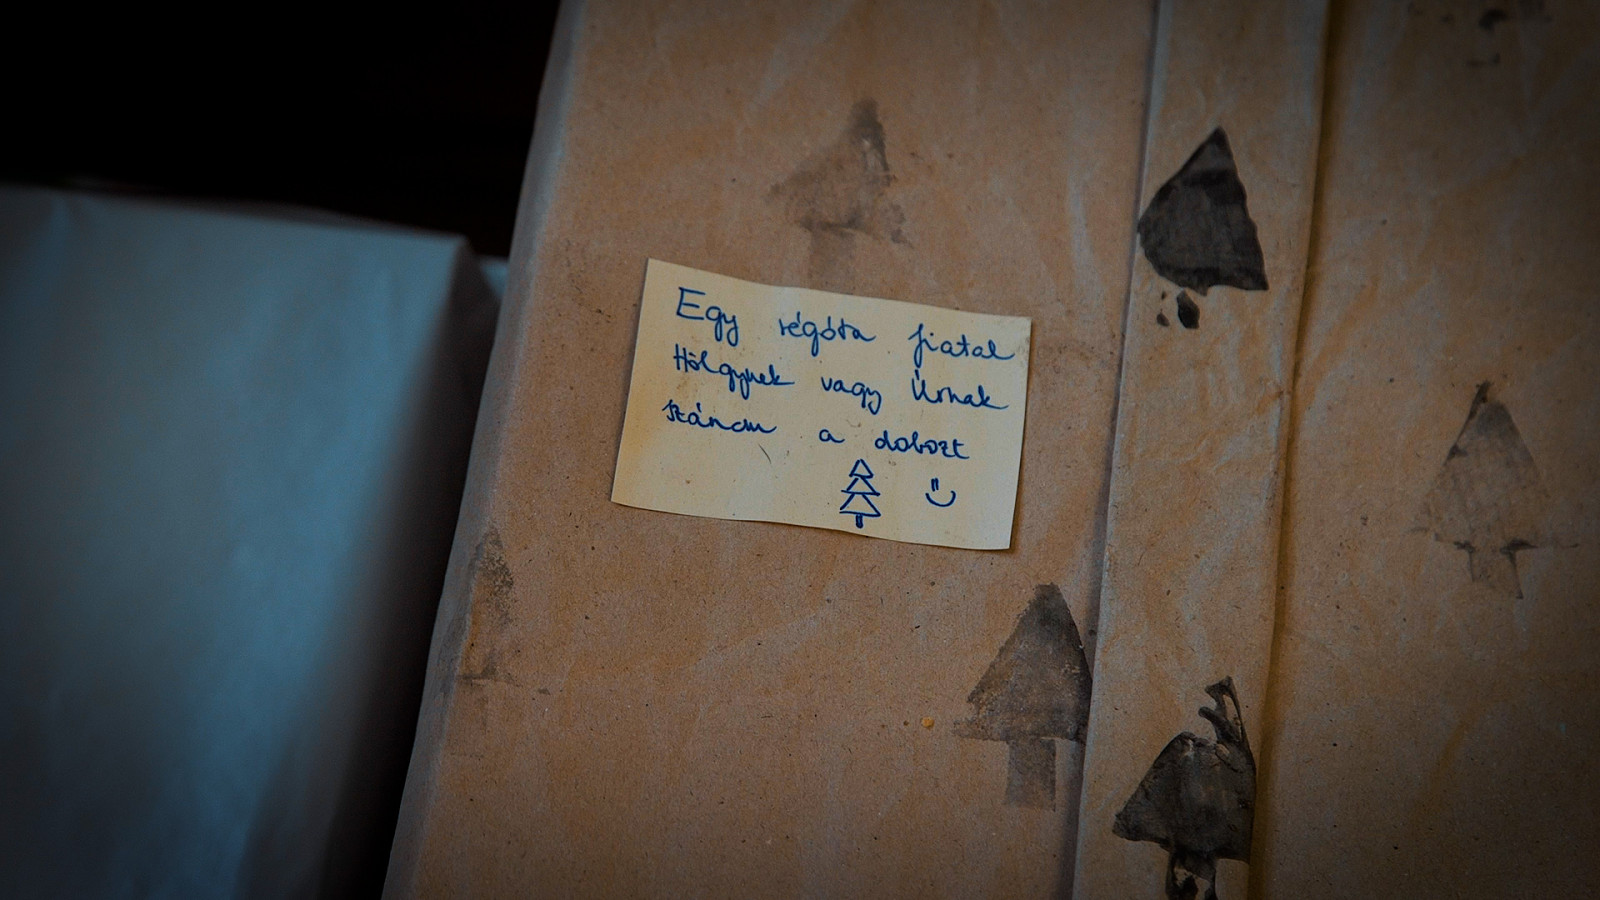 Egy régóta fiatal
Hölgynek vagy Úrnak
szánom a dobozt